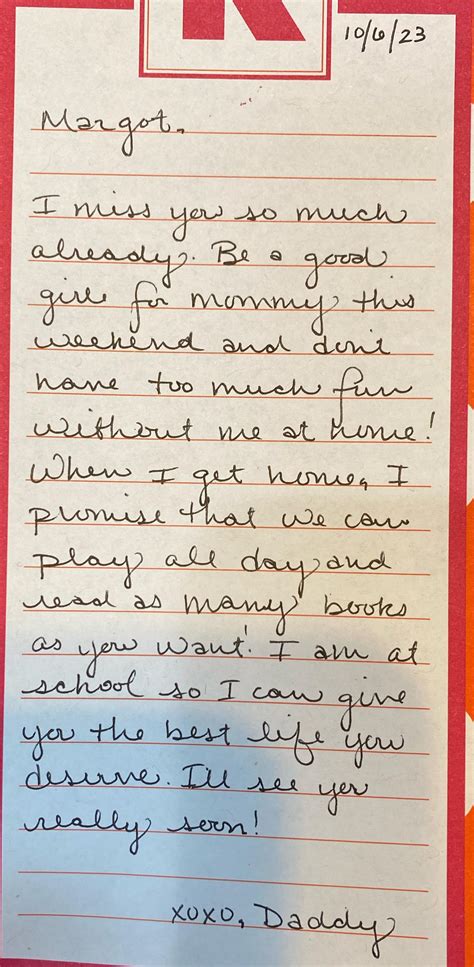 R
10/6/23
Margot,
I miss you so much
already. Be a good
girl for mommy this
weekend and don't
have too much fun
without me at home!
When I get home, I
promise that we can
play all day and
read as many books
as you want! I am at
school so I can give
you the best life you
deserve. I'll see you
really soon!
xoxo, Daddy